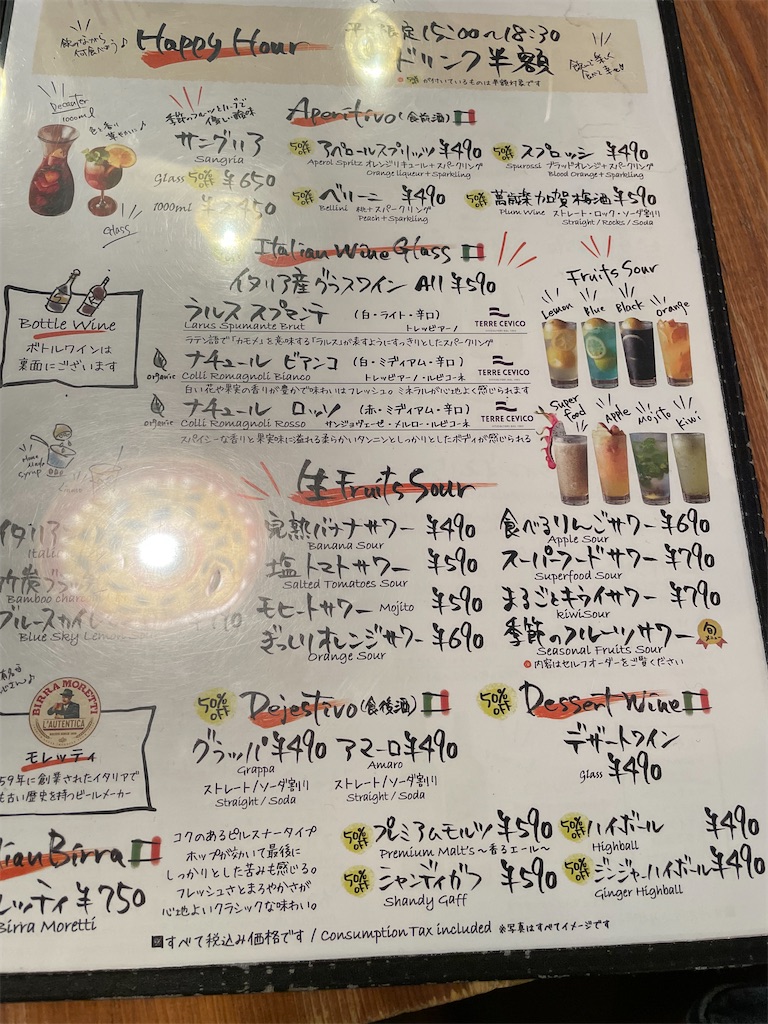 飲みながら
Happy Hour
限定15:00〜18:30
ドリンク半額
が付いているものは半額対象です
Decanter
1000ml
Glass
サングリア
Sangria
Glass 50% OFF ¥650
1000ml
Aperitivo (食前酒)
50% OFF アペロールスプリッツ ¥490
Aperol Spritz オレンジリキュール+スパークリング
Orange liqueur+Sparkling
50% OFF スプロッシ ¥490
Spurossi ブラッドオレンジ+スパークリング
Blood Orange+Sparkling
50% OFF ベリーニ ¥490
Bellini 桃+スパークリング
Peach+Sparkling
50% OFF 萬歳楽加賀梅酒 ¥590
Plum Wine ストレート・ロック・ソーダ割り
Straight/Rocks/Soda
Italian Wine Glass
イタリア産グラスワイン All ¥590
ラルス スプマンテ (白・ライト・辛口)
Larus Spumante Brut トレッビアーノ
TERRE CEVICO
ラテン語で「カモメ」を意味する「ラルス」が表すようにすっきりとしたスパークリング
organic
ナチュール ビアンコ (白・ミディアム・辛口)
Colli Romagnoli Bianco トレッビアーノ・ルビコーネ
TERRE CEVICO
白い花や果実の香りが豊かで味わいはフレッシュ。ミネラルが心地よく感じられます
organic
ナチュール ロッソ (赤・ミディアム・辛口)
Colli Romagnoli Rosso サンジョヴェーゼ・メルロー・ルビコーネ
TERRE CEVICO
スパイシーな香りと果実味に溢れる柔らかいタンニンとしっかりとしたボディが感じられる
Bottle Wine
ボトルワインは
裏面にございます
Fruits Sour
Lemon
Blue
Black
Orange
Super food
Apple
Mojito
Kiwi
Home Made Syrup
生Fruits Sour
イタリア
Bamboo char
ブルースカイレ
Blue Sky Lemon
完熟バナナサワー ¥490
Banana Sour
塩トマトサワー ¥590
Salted Tomatoes Sour
モヒートサワー Mojito ¥590
ぎっしりオレンジサワー ¥690
Orange Sour
食べるりんごサワー ¥690
Apple Sour
スーパーフードサワー ¥790
Superfood Sour
まるごとキウイサワー ¥790
kiwiSour
季節のフルーツサワー 旬
Seasonal Fruits Sour
内容はセルフオーダーをご覧ください
BIRRA MORETTI
L'AUTENTICA
モレッティ
59年に創業されたイタリアで
も古い歴史を持つビールメーカー
50% OFF Dejestivo (食後酒)
グラッパ ¥490
Grappa
ストレート/ソーダ割り
Straight/Soda
アマーロ ¥490
Amaro
ストレート/ソーダ割り
Straight/Soda
50% OFF Dessert Wine
デザートワイン
Glass ¥490
lian Birra
レッティ ¥750
Birra Moretti
コクのあるピルスナータイプ
ホップが効いて最後に
しっかりとした苦みも感じる。
フレッシュさとまろやかさが
心地よいクラシックな味わい。
50% OFF プレミアムモルツ ¥590
Premium Malt's 〜香るエール〜
50% OFF シャンディガフ ¥590
Shandy Gaff
50% OFF ハイボール ¥490
Highball
50% OFF ジンジャーハイボール ¥490
Ginger Highball
すべて税込み価格です / Consumption Tax included ※写真はすべてイメージです